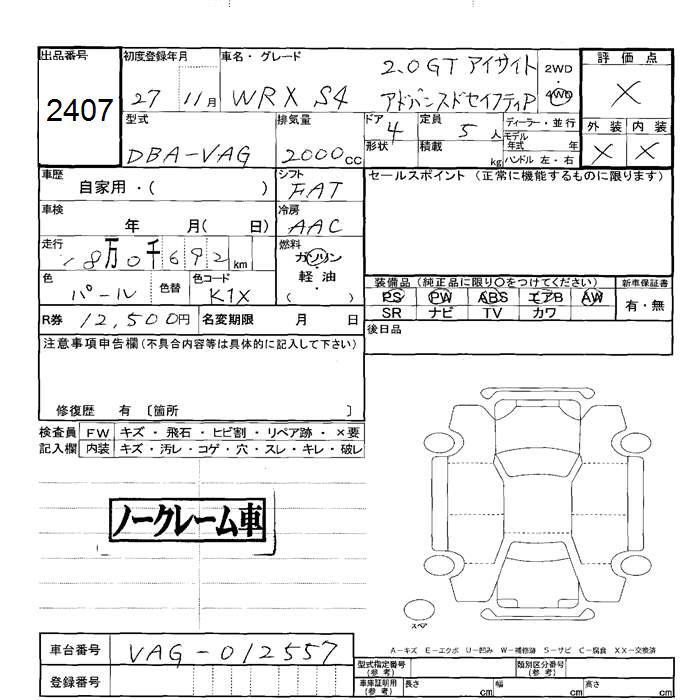 出品番号 初度登録年月 車名・グレード 評価点
2407 27 11月 WRX S4 2.0GT アイサイト アドバンスドセイフティP 2WD・4WD X
型式 排気量 ドア 定員 ディーラー・並行 外装 内装
DBA-VAG 2000cc 4 5人 モデル年式 年 X X
形状 積載 kg ハンドル 左・右
車歴 シフト セールスポイント (正常に機能するものに限ります)
自家用・( ) FAT
車検 冷房
年 月( 日) AAC
走行 燃料
18万0千692km ガソリン・軽油・( )
色 色替 色コード 装備品 (純正品に限り○をつけてください) 新車保証書
パール K1X PS PW ABS エアB AW 有・無
SR ナビ TV カワ
R券 12,500円 名変期限 月 日 後日品
注意事項申告欄(不具合内容等は具体的に記入して下さい)
修復歴 有 〔箇所 〕
検査員 FW キズ・飛石・ヒビ割・リペア跡・×要
記入欄 内装 キズ・汚レ・コゲ・穴・スレ・キレ・破レ
ノークレーム車
スペア
A-キズ E-エクボ U-凹み W-補修跡 S-サビ C-腐食 XX-交換済
車台番号 VAG-012557
登録番号
型式指定番号(参考) 類別区分番号(参考)
車庫証明用(参考) 長さ cm 幅 cm 高さ cm